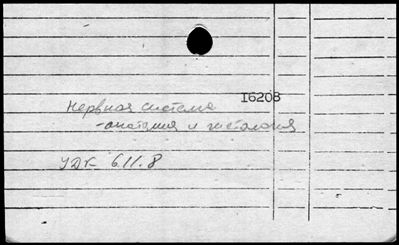 I6208
Нервная система
-анатомия и гистология
УДК 6.11.8